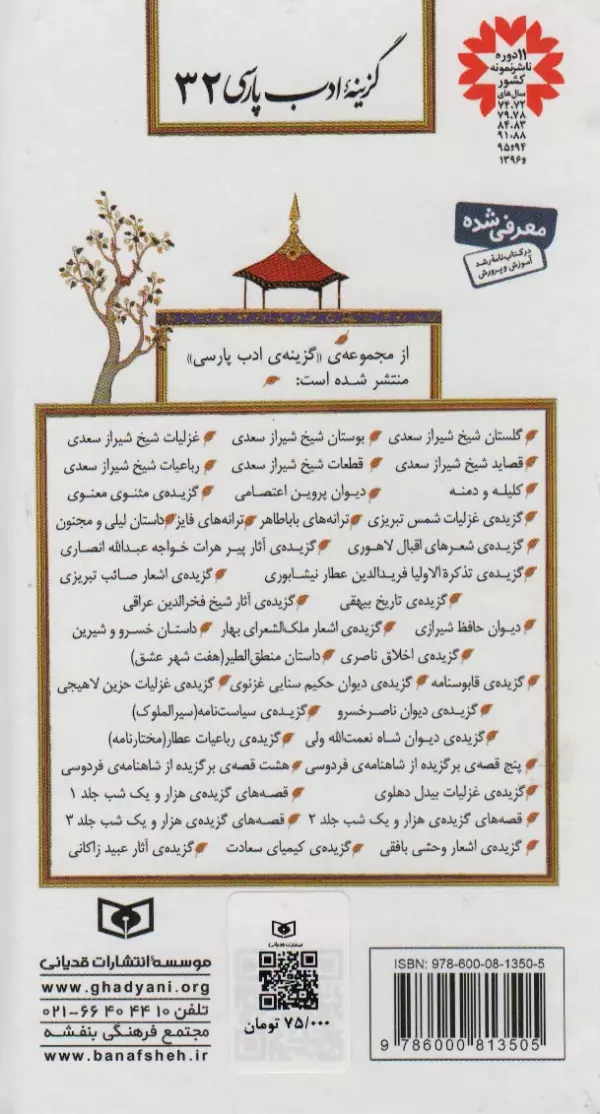 گزینهٔ ادب پارسی ۳۲
۱۱ دوره
ناشر نمونه
کشور
سال‌های
۷۴،۷۲
۷۹،۷۸
۸۴،۸۳
۹۱،۸۸
۹۴ و ۹۵
و ۱۳۹۶
معرفی شده
در کتاب‌نامه رشد
آموزش و پرورش
از مجموعه‌ی «گزینه‌ی ادب پارسی»
منتشر شده است:
گلستان شیخ شیراز سعدی بوستان شیخ شیراز سعدی غزلیات شیخ شیراز سعدی
قصاید شیخ شیراز سعدی قطعات شیخ شیراز سعدی رباعیات شیخ شیراز سعدی
کلیله و دمنه دیوان پروین اعتصامی گزیده‌ی مثنوی معنوی
گزیده‌ی غزلیات شمس تبریزی ترانه‌های باباطاهر ترانه‌های فایز داستان لیلی و مجنون
گزیده‌ی شعرهای اقبال لاهوری گزیده‌ی آثار پیر هرات خواجه عبدالله انصاری
گزیده‌ی تذکرة الاولیا فریدالدین عطار نیشابوری گزیده‌ی اشعار صائب تبریزی
گزیده‌ی تاریخ بیهقی گزیده‌ی آثار شیخ فخرالدین عراقی
دیوان حافظ شیرازی گزیده‌ی اشعار ملک‌الشعرای بهار داستان خسرو و شیرین
گزیده‌ی اخلاق ناصری داستان منطق‌الطیر(هفت شهر عشق)
گزیده‌ی قابوسنامه گزیده‌ی دیوان حکیم سنایی غزنوی گزیده‌ی غزلیات حزین لاهیجی
گزیده‌ی دیوان ناصرخسرو گزیده‌ی سیاست‌نامه(سیرالملوک)
گزیده‌ی دیوان شاه نعمت‌الله ولی گزیده‌ی رباعیات عطار(مختارنامه)
پنج قصه‌ی برگزیده از شاهنامه‌ی فردوسی هشت قصه‌ی برگزیده از شاهنامه‌ی فردوسی
گزیده‌ی غزلیات بیدل دهلوی قصه‌های گزیده‌ی هزار و یک شب جلد ۱
قصه‌های گزیده‌ی هزار و یک شب جلد ۲ قصه‌های گزیده‌ی هزار و یک شب جلد ۳
گزیده‌ی اشعار وحشی بافقی گزیده‌ی کیمیای سعادت گزیده‌ی آثار عبید زاکانی
موسسهٔ انتشارات قدیانی
www.ghadyani.org
تلفن ۱۰ ۴۴ ۴۰ ۶۶-۰۲۱
مجتمع فرهنگی بنفشه
www.banafsheh.ir
انتشارات قدیانی
۷۵/۰۰۰ تومان
ISBN: 978-600-08-1350-5
9 786000 813505